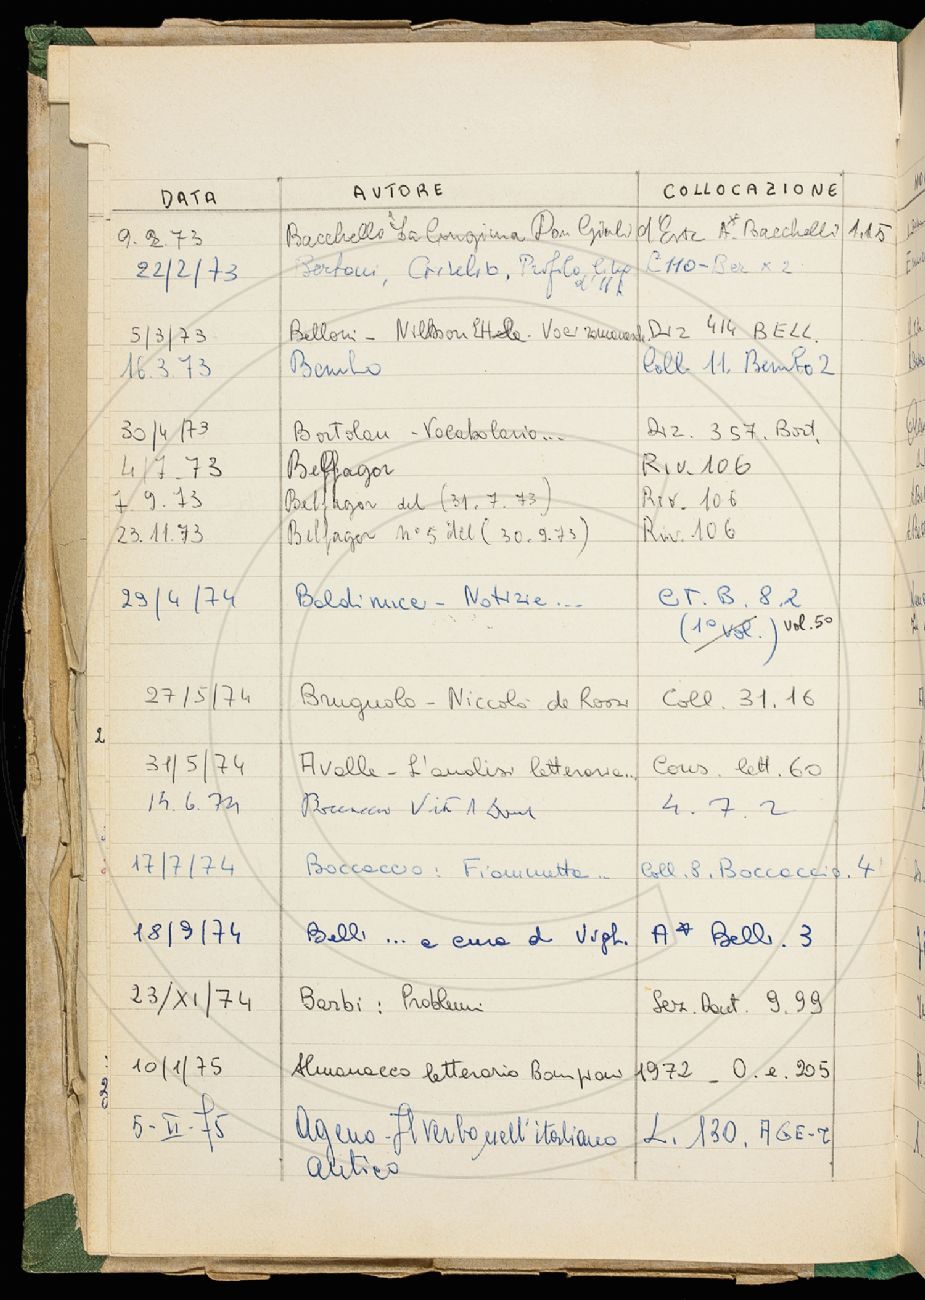 DATA AUTORE COLLOCAZIONE
9.2.73 Bacchelli La Congiura Don Giulio d'Este A* Bacchelli 1.15
22/2/73 Bertoni, Profilo E110-Ber x 2
5/3/73 Belloni - Nilsson Ehle. Voci romanesche. Diz 414 BELL.
16.3.73 Bembo Coll. 11. Bembo 2
30/4/73 Bortolan - Vocabolario... Diz. 357. Bort.
4/7.73 Belfagor Riv. 106
7 9.73 Belfagor del (31.7.73) Riv. 106
23.11.73 Belfagor n° 5 del (30.9.73) Riv. 106
29/4/74 Baldinucci - Notizie... CT. B. 8.2
(1° vol.) vol. 5°
27/5/74 Brugnolo - Niccolò de Rossi Coll. 31.16
2
31/5/74 Avalle - L'analisi letteraria... Cons. lett. 60
14.6.74 4.7.2
17/7/74 Boccaccio: Fiammetta... Coll. 8. Boccaccio. 4
18/9/74 Belli ... a cura di Vigh. A* Belli. 3
23/XI/74 Barbi: Problemi Sez. Dant. 9.99
10/1/75 Almanacco letterario Bompiani 1972 - O.e. 205
5-II-75 Ageno - Il verbo nell'italiano L. 130. AGE-r
antico